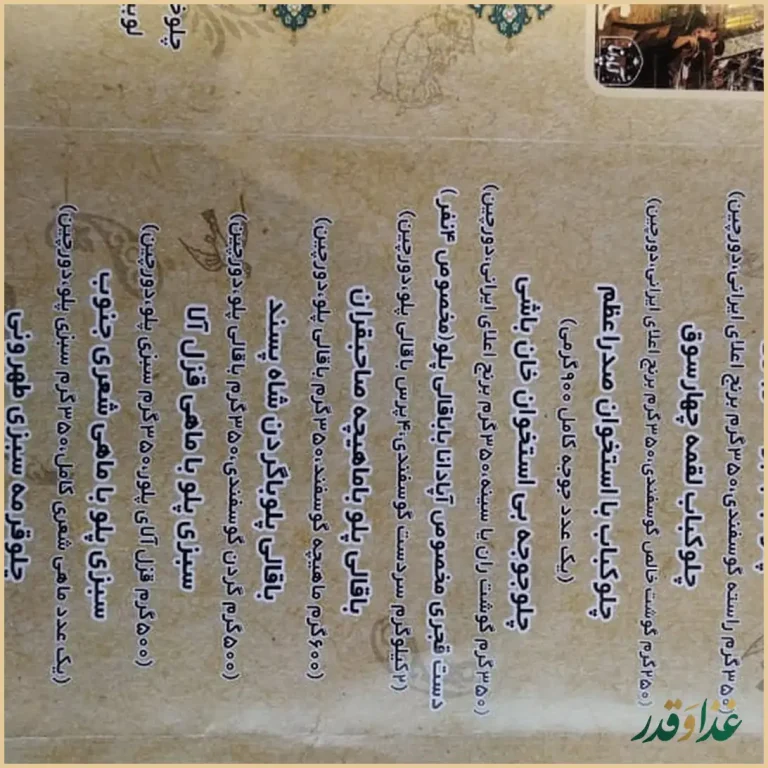 (۳۵۰گرم راسته گوسفندی،۳۵۰گرم برنج اعلای ایرانی،دورچین)
چلوکباب لقمه چهارسوق
(۲۵۰گرم گوشت خالص گوسفندی،۳۵۰گرم برنج اعلای ایرانی،دورچین)
چلوکباب با استخوان صدراعظم
(یک عدد جوجه کامل ۹۰۰گرمی)
چلوجوجه بی استخوان خان باشی
(۳۵۰گرم گوشت ران یا سینه،۳۵۰گرم برنج اعلای ایرانی،دورچین)
دست قجری مخصوص آپادانا باباقالی پلو(مخصوص ۴نفر)
(۲کیلوگرم سردست گوسفندی،۴پرس باقالی پلو،دورچین)
باقالی پلو باماهیچه صاحبقران
(۶۰۰گرم ماهیچه گوسفند،۳۵۰گرم باقالی پلو،دورچین)
باقالی پلوباگردن شاه پسند
(۵۰۰گرم گردن گوسفندی،۳۵۰گرم باقالی پلو،دورچین)
سبزی پلو با ماهی قزل آلا
(۵۰۰گرم قزل آلای پلور،۳۵۰گرم سبزی پلو،دورچین)
سبزی پلو با ماهی شعری جنوب
(یک عدد ماهی شعری کامل،۳۵۰گرم سبزی پلو،دورچین)
چلوقرمه سبزی طهرونی
غذاوقدر